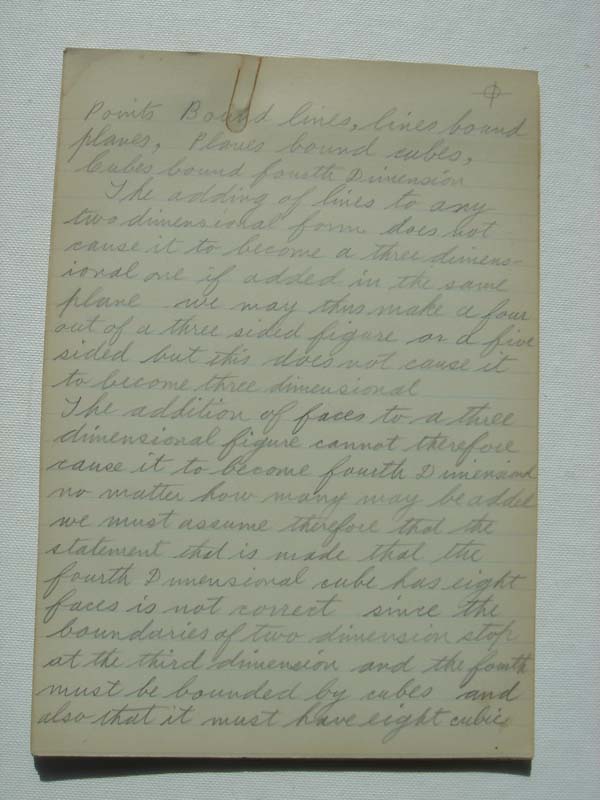 Points Bound lines, lines bound
planes, Planes bound cubes,
Cubes bound fourth Dimension
The adding of lines to any
two dimensional form does not
cause it to become a three dimens-
ional one if added in the same
plane we may thus make a four
out of a three sided figure or a five
sided but this does not cause it
to become three dimensional
The addition of faces to a three
dimensional figure cannot therefore
cause it to become fourth Dimensional
no matter how many may be added
we must assume therefore that the
statement that is made that the
fourth Dimensional cube has eight
faces is not correct since the
boundaries of two dimension stop
at the third dimension and the fourth
must be bounded by cubes and
also that it must have eight cubic